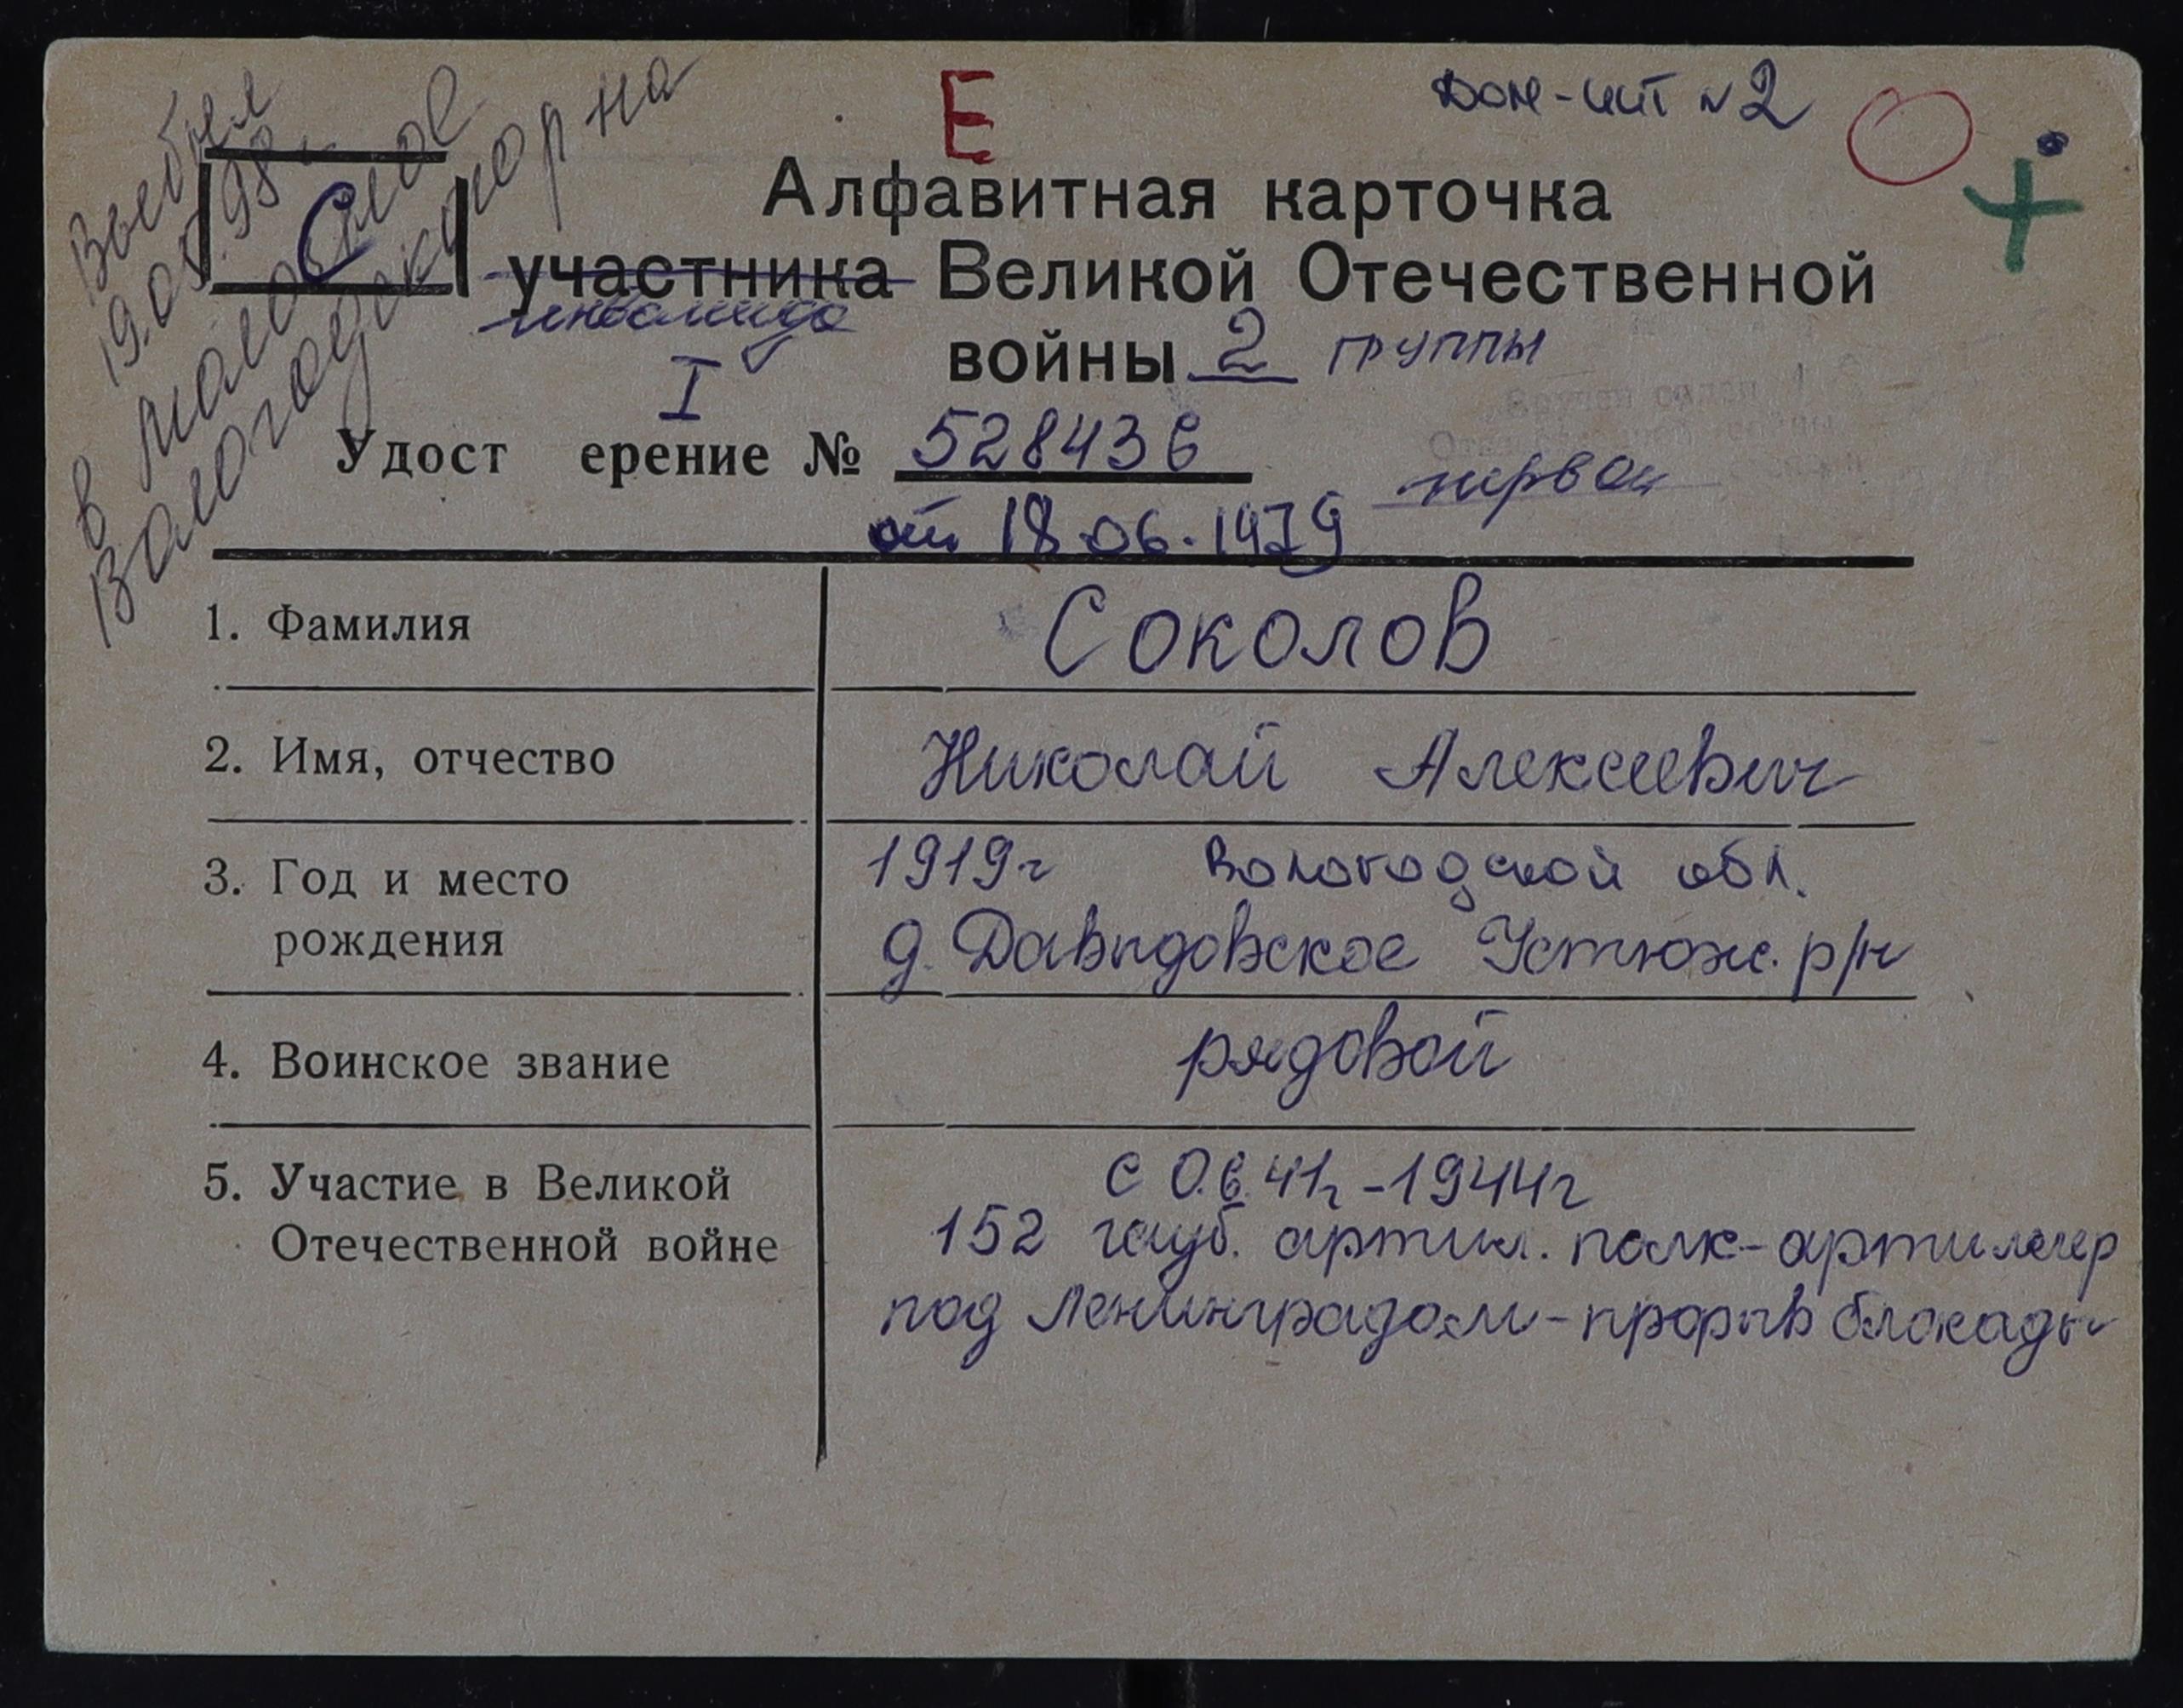 Е
дом-инт N2
Выбыл
19.05.98 г
в
С
Алфавитная карточка
участника Великой Отечественной
инвалида
войны 2 группы
I
Удост ерение № 528436
первой
от 18.06.1979
1. Фамилия
Соколов
2. Имя, отчество
Николай Алексеевич
3. Год и место
рождения
1919г Вологодской обл.
д. Давыдовское Устюж. р/н
4. Воинское звание
рядовой
5. Участие в Великой
Отечественной войне
с 06.41г-1944г
152 гауб. артил. полк-артилер
под Ленинградом-прорыв блокады